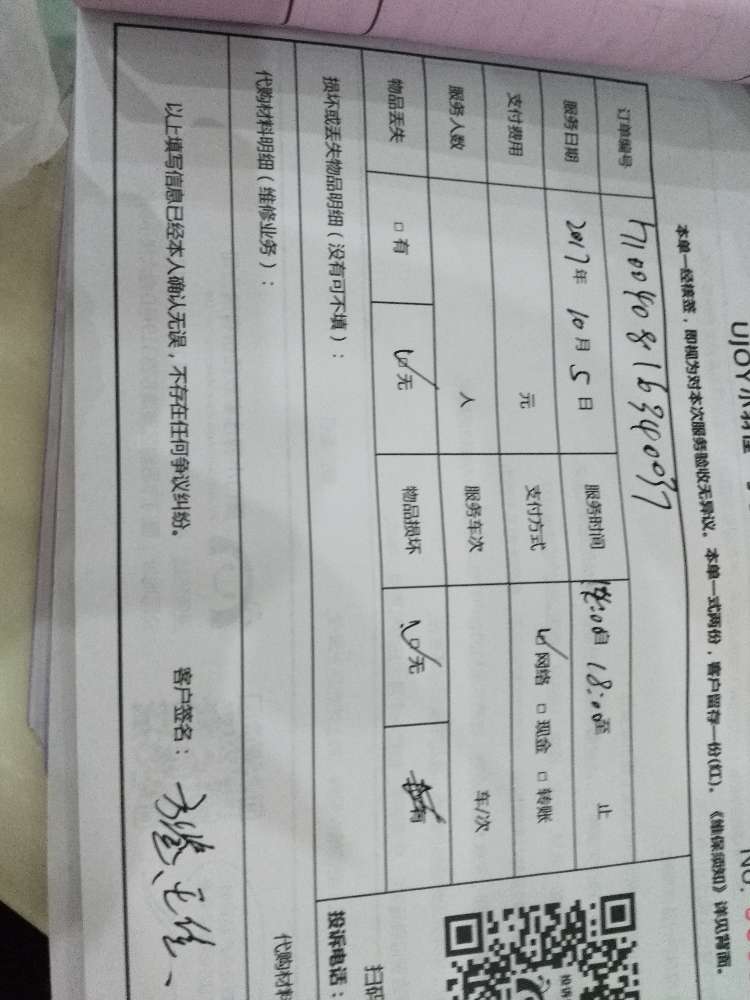 UJOY
NO.
本单一经核签，即视为对本次服务验收无异议。本单一式两份，客户留存一份(红)。《维保须知》详见背面。
订单编号
服务日期 2017年 10月 5日 服务时间 14:00自 18:00至 止
支付费用 元 支付方式 ☑网络 □现金 □转账
服务人数 人 服务车次 车/次
物品丢失 □有 ☑无 物品损坏 ☑无 有
损坏或丢失物品明细（没有可不填）：
代购材料明细（维修业务）：
以上填写信息已经本人确认无误，不存在任何争议纠纷。 客户签名：
投诉
扫码
投诉电话：
代购材料